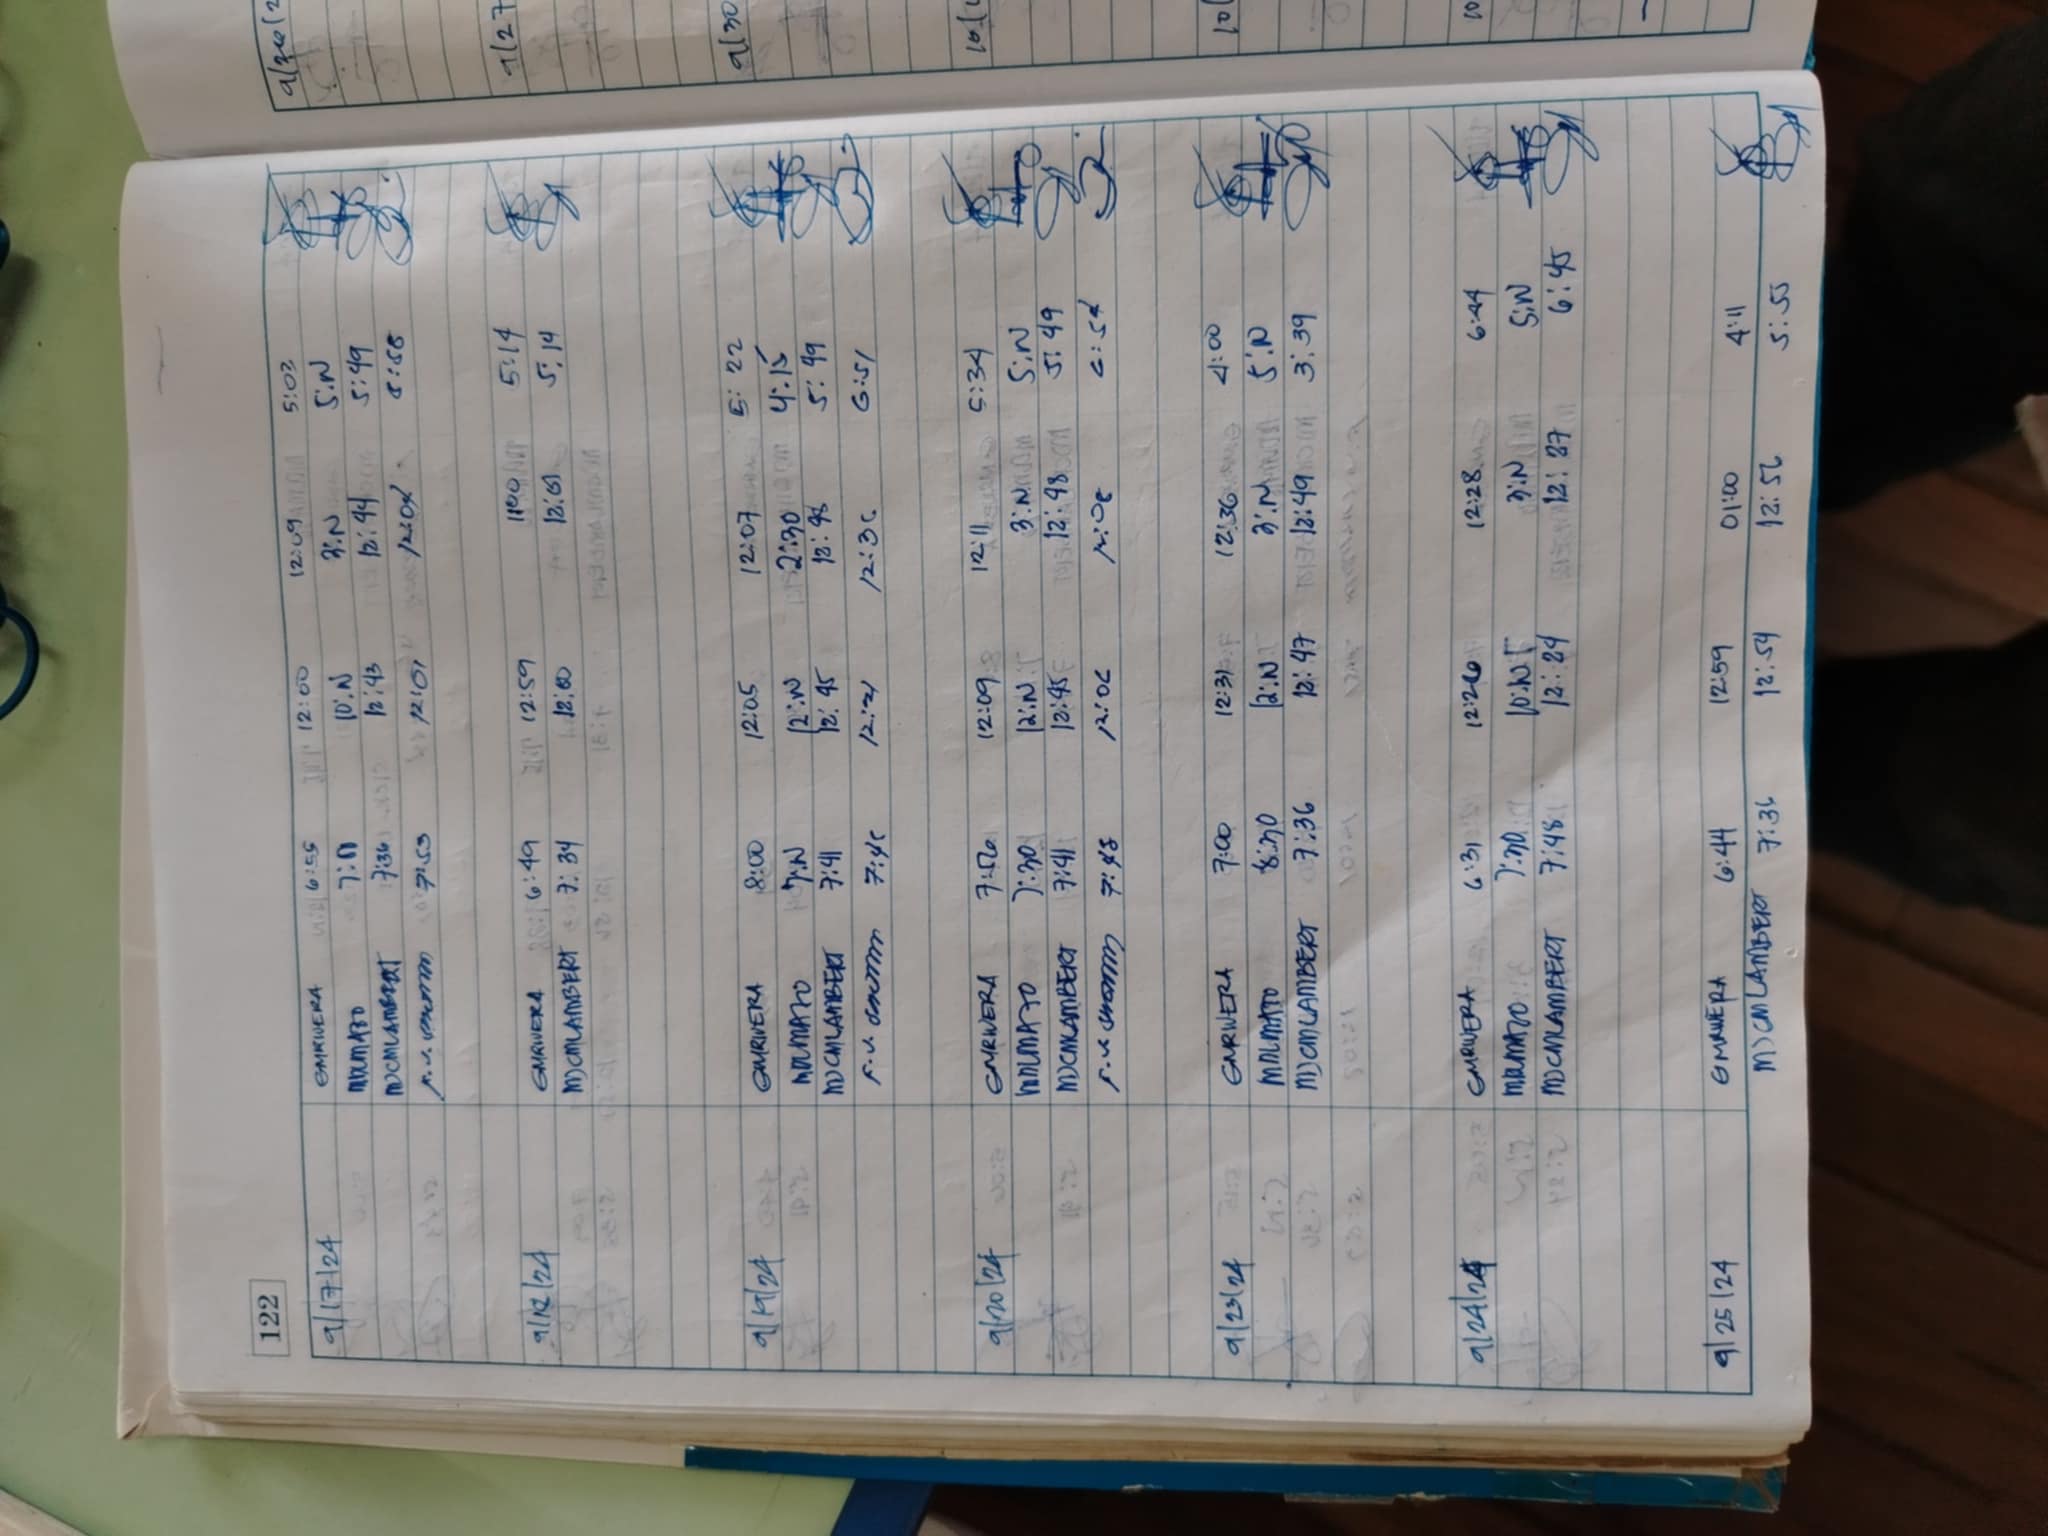 122
9/17/24 GMRIVERA 6:55 12:00 12:09 5:02
7:11 10:N 3:N 5:N
MJCMLAMBERT 7:36 12:43 12:44 5:49
7:53 12:01 12:02 5:58
9/18/24 GMRIVERA 6:49 12:59 1:00 5:14
MJCMLAMBERT 7:34 12:00 12:01 5:14
9/19/24 GMRIVERA 8:00 12:05 12:07 5:22
7:N 12:N 2:30 4:15
MJCMLAMBERT 7:41 12:45 12:46 5:49
12:21
9/20/24 GMRIVERA 7:56 12:09 12:11 5:34
7:30 12:N 3:N 5:N
MJCMLAMBERT 7:41 12:45 12:48 5:49
7:48 12:06 12:08
9/23/24 GMRIVERA 7:00 12:31 12:36 4:00
8:30 12:N 3:N 5:N
MJCMLAMBERT 7:36 12:47 12:49 3:39
9/24/24 GMRIVERA 6:31 12:26 12:28 6:44
7:30 10:N 3:N 5:N
MJCMLAMBERT 7:48 12:24 12:27 6:45
9/25/24 GMRIVERA 6:44 12:59 01:00 4:11
MJCMLAMBERT 7:36 12:54 12:56 5:55
9/26/2
9/27
9/30
10/
10/
10